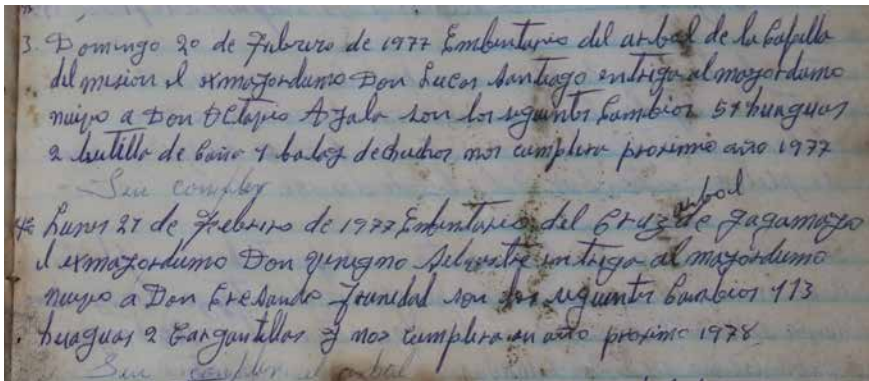 3. Domingo 20 de Febrero de 1977 Embentario del arbol de la Capilla
del mision el exmajordumo Don Lucas Santiago entriga al majordumo
nuivo a Don Octapio Ayala son los siguentes Cambios 51 huaguas
2 butilla de Caña y balay de chuchos nos cumplira proximo año 1977
Seu complex
4 Lunes 21 de Febrero de 1977 Embentario del Cruz arbol de Jagamayo
el exmajordumo Don Venigno Selvestre entriga al majordumo
nuivo a Don Cresando Trinedad son los siguentes Cambios 113
huaguas 2 Cargantillas y nos cumplira en año proximo 1978
Seu complex el arbol